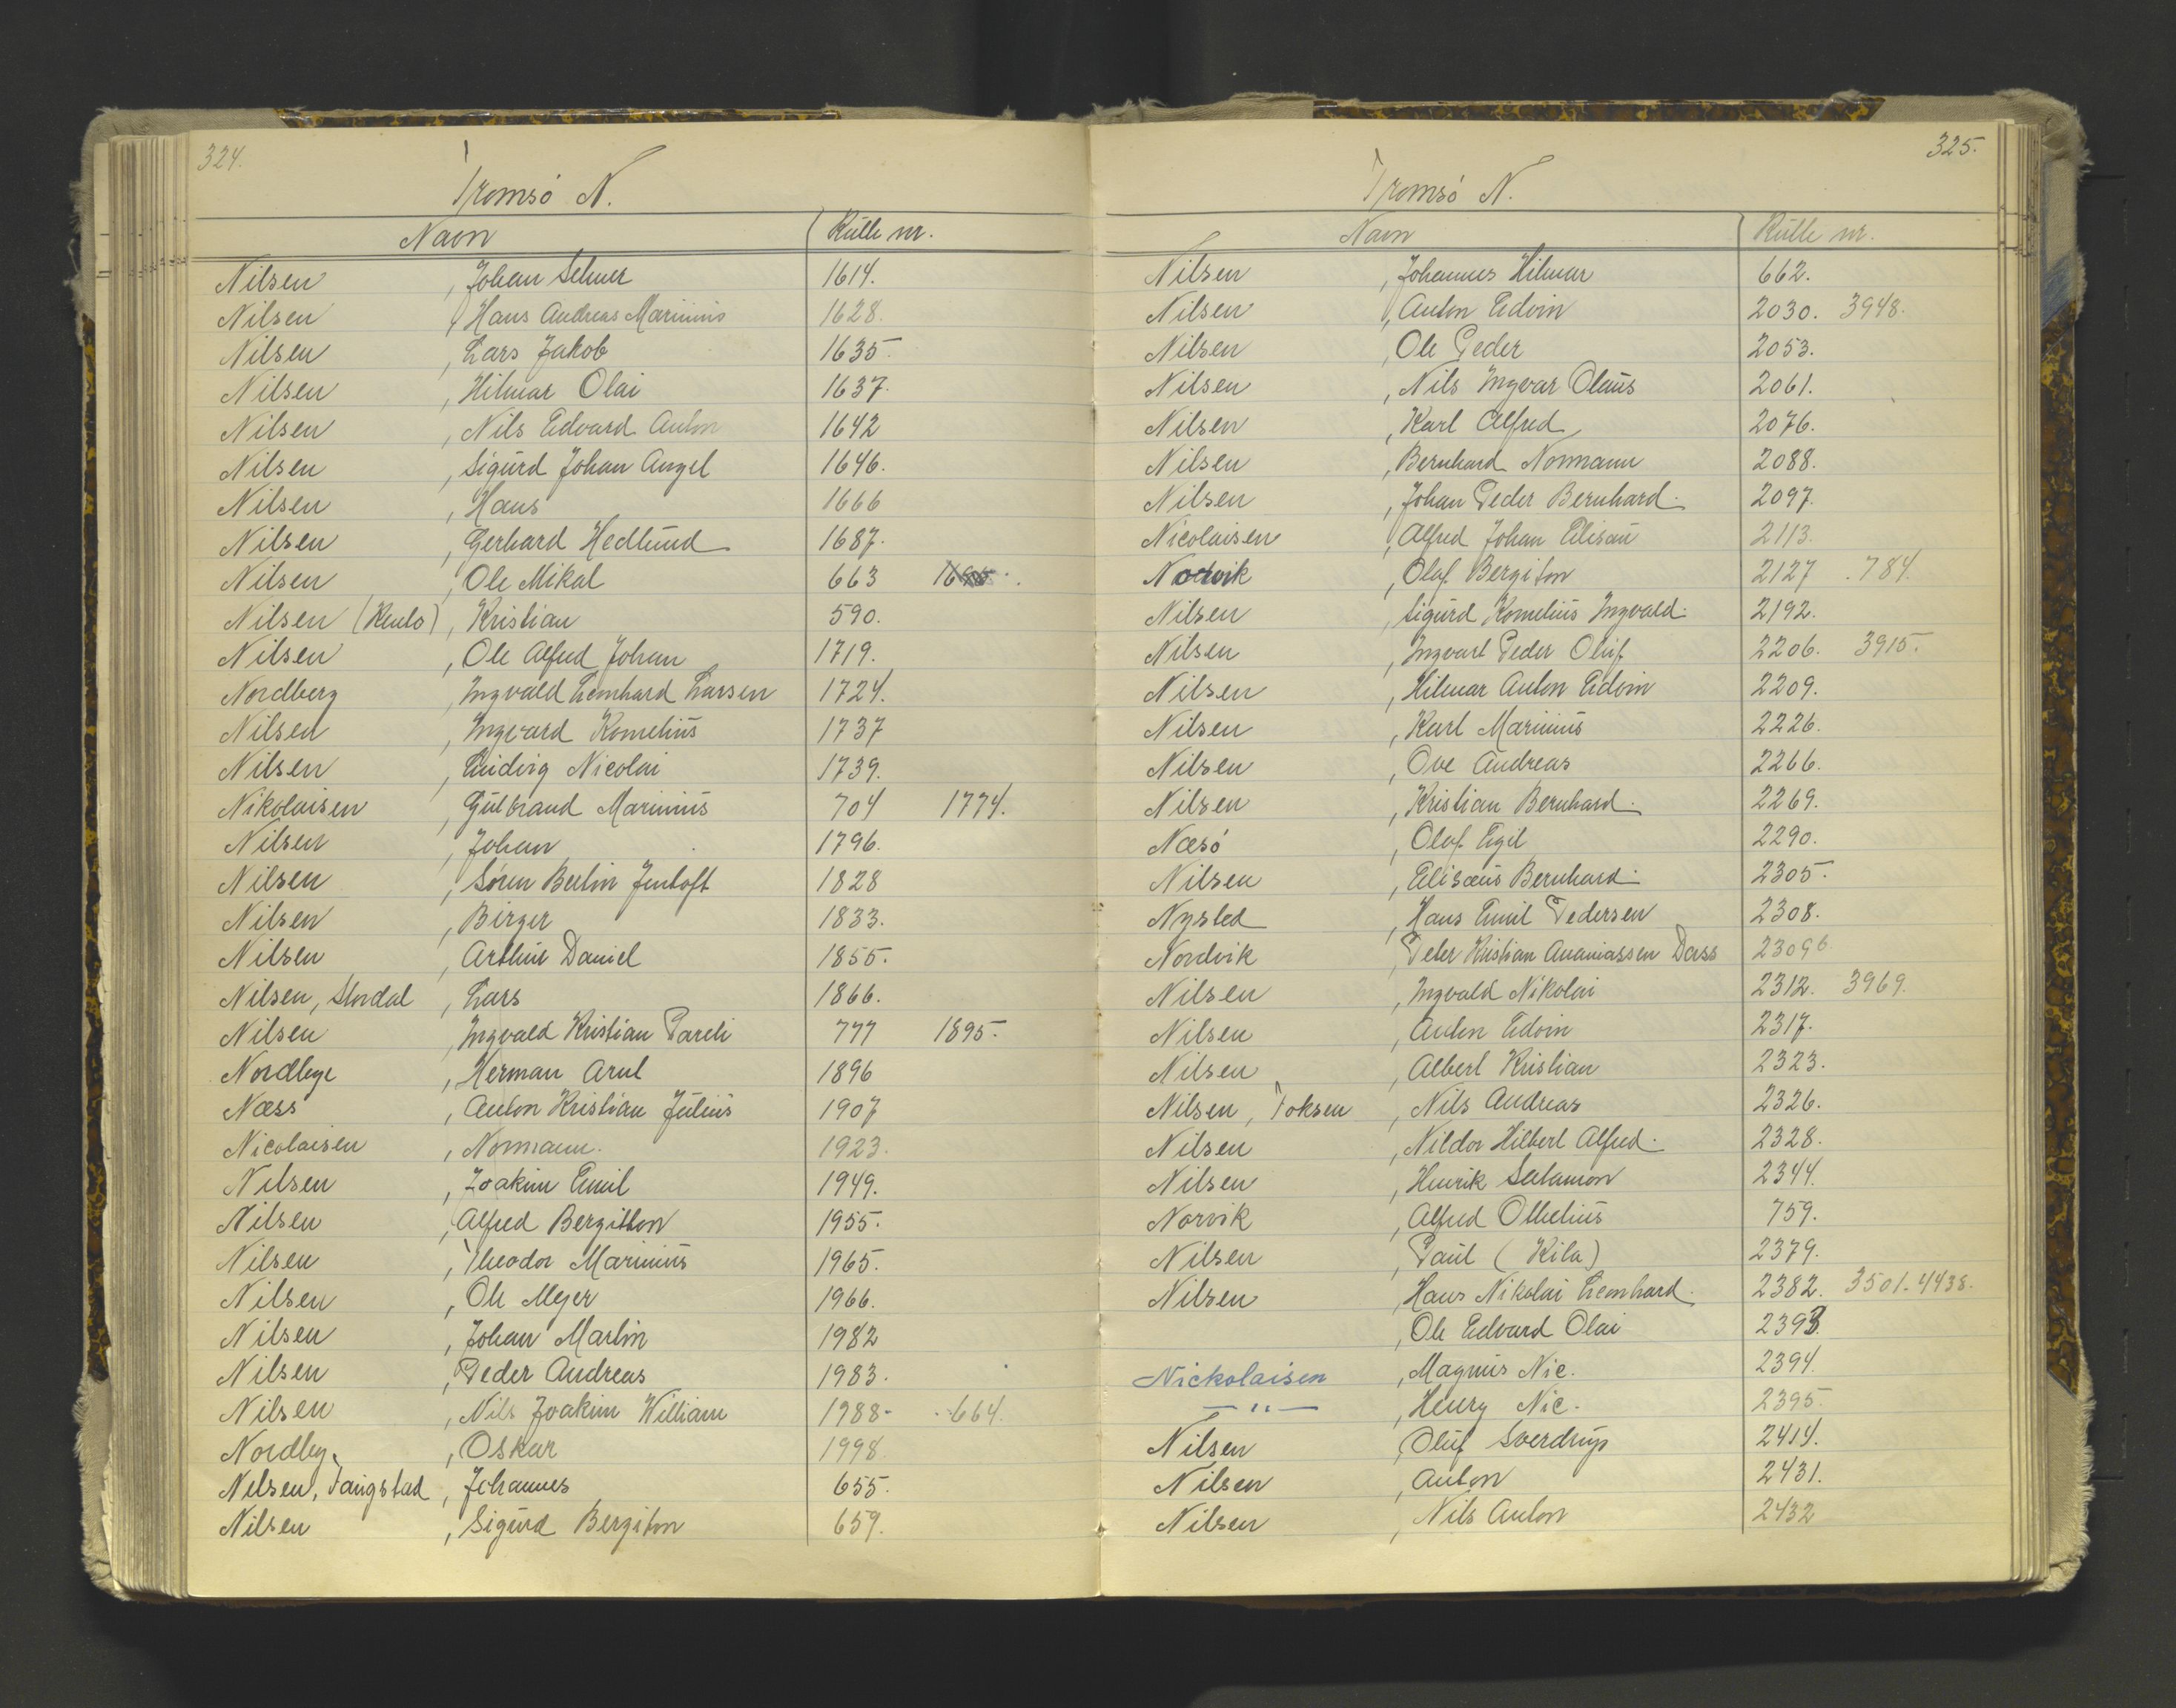 324.
Tromsö N.
Navn Rulle nr.
Nilsen, Johan Selmer 1614.
Nilsen, Hans Andreas Marinius 1628.
Nilsen, Lars Jakob 1635.
Nilsen, Hilmar Olai 1637.
Nilsen, Nils Edvard Anton 1642
Nilsen, Sigurd Johan Angel 1646.
Nilsen, Hans 1666
Nilsen, Gerhard Hedlund 1687.
Nilsen, Ole Mikal 663
Nilsen, Kristian 590.
Nilsen, Ole Alfred Johan 1719.
Nordberg, Ingvald Leonhard Larsen 1724.
Nilsen, Ingvard Kornelius 1737
Nilsen, Ludvig Nicolai 1739.
Nikolaisen, Gulbrand Marinius 704 1774.
Nilsen, Johan 1796.
Nilsen, Sören Bertin Jentoft 1828
Nilsen, Birger 1833.
Nilsen, Arthur Daniel 1855.
Nilsen, Stordal, Lars 1866.
Nilsen, Ingvald Kristian Pareli 777 1895.
Nordbye, Herman Arnt 1896
Næss, Anton Kristian Julius 1907
Nicolaisen, Normann. 1923.
Nilsen, Joakim Emil 1949.
Nilsen, Alfred Bergitton 1955.
Nilsen, Theodor Marinius 1965.
Nilsen, Ole Meyer 1966.
Nilsen, Johan Martin 1982
Nilsen, Peder Andreas 1983.
Nilsen, Nils Joakim William 1988- 664.
Nordby, Oskar 1998.
Nilsen, Tangstad, Johannes 655.
Nilsen, Sigurd Bergiton 659.
325.
Tromsö N.
Navn Rulle nr.
Nilsen, Johannes Hilmar 662.
Nilsen, Anton Edvin 2030. 3948.
Nilsen, Ole Peder 2053.
Nilsen, Nils Ingvar Olaus 2061.
Nilsen, Karl Alfred 2076.
Nilsen, Bernhard Normann 2088.
Nilsen, Johan Peder Bernhard. 2097.
Nicolaisen, Alfred Johan Elisau 2113.
Norvik, Olaf Bergiton 2127 .784.
Nilsen, Sigurd Kornelius Ingvald. 2192.
Nilsen, Ingvart Peder Oluf 2206. 3915.
Nilsen, Hilmar Anton Edvin 2209.
Nilsen, Karl Marinius 2226.
Nilsen, Ove Andreas 2266.
Nilsen, Kristian Bernhard. 2269.
Næsö, Olaf Egil 2290.
Nilsen, Elisæus Bernhard. 2305.
Nysted, Hans Emil Pedersen 2308.
Nordvik, Peter Kristian Ananiassen Dass 2309b
Nilsen, Ingvald Nikolai 2312. 3969.
Nilsen, Anton Edvin 2317.
Nilsen, Albert Kristian 2323.
Nilsen, Foksen, Nils Andreas 2326.
Nilsen, Nildor Hilbert Alfred. 2328.
Nilsen, Henrik Salamon 2344.
Norvik, Alfred Othelius 759.
Nilsen, Paul (Kila) 2379.
Nilsen, Hans Nikolai Leonhard. 2382. 3501. 4438.
, Ole Edvard Olai 2393.
Nickolaisen, Magnus Nic. 2394.
— " —, Henry Nic. 2395.
Nilsen, Oluf Sverdrup 2414.
Nilsen, Anton 2431.
Nilsen, Nils Anton 2432